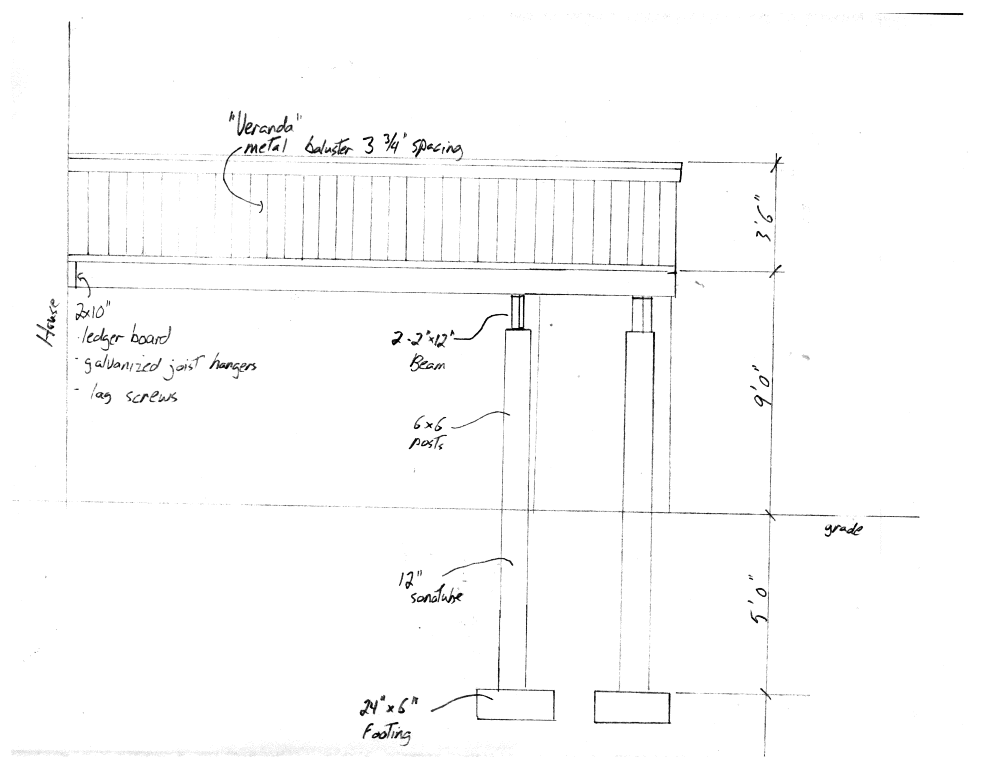 "Veranda"
metal baluster 3 3/4" spacing
3'6"
2x10"
·ledger board
- galvanized joist hangers
- lag screws
House
2-2"x12"
Beam
9'0"
6x6
posts
grade
12"
sonatube
5'0"
24"x6"
footing